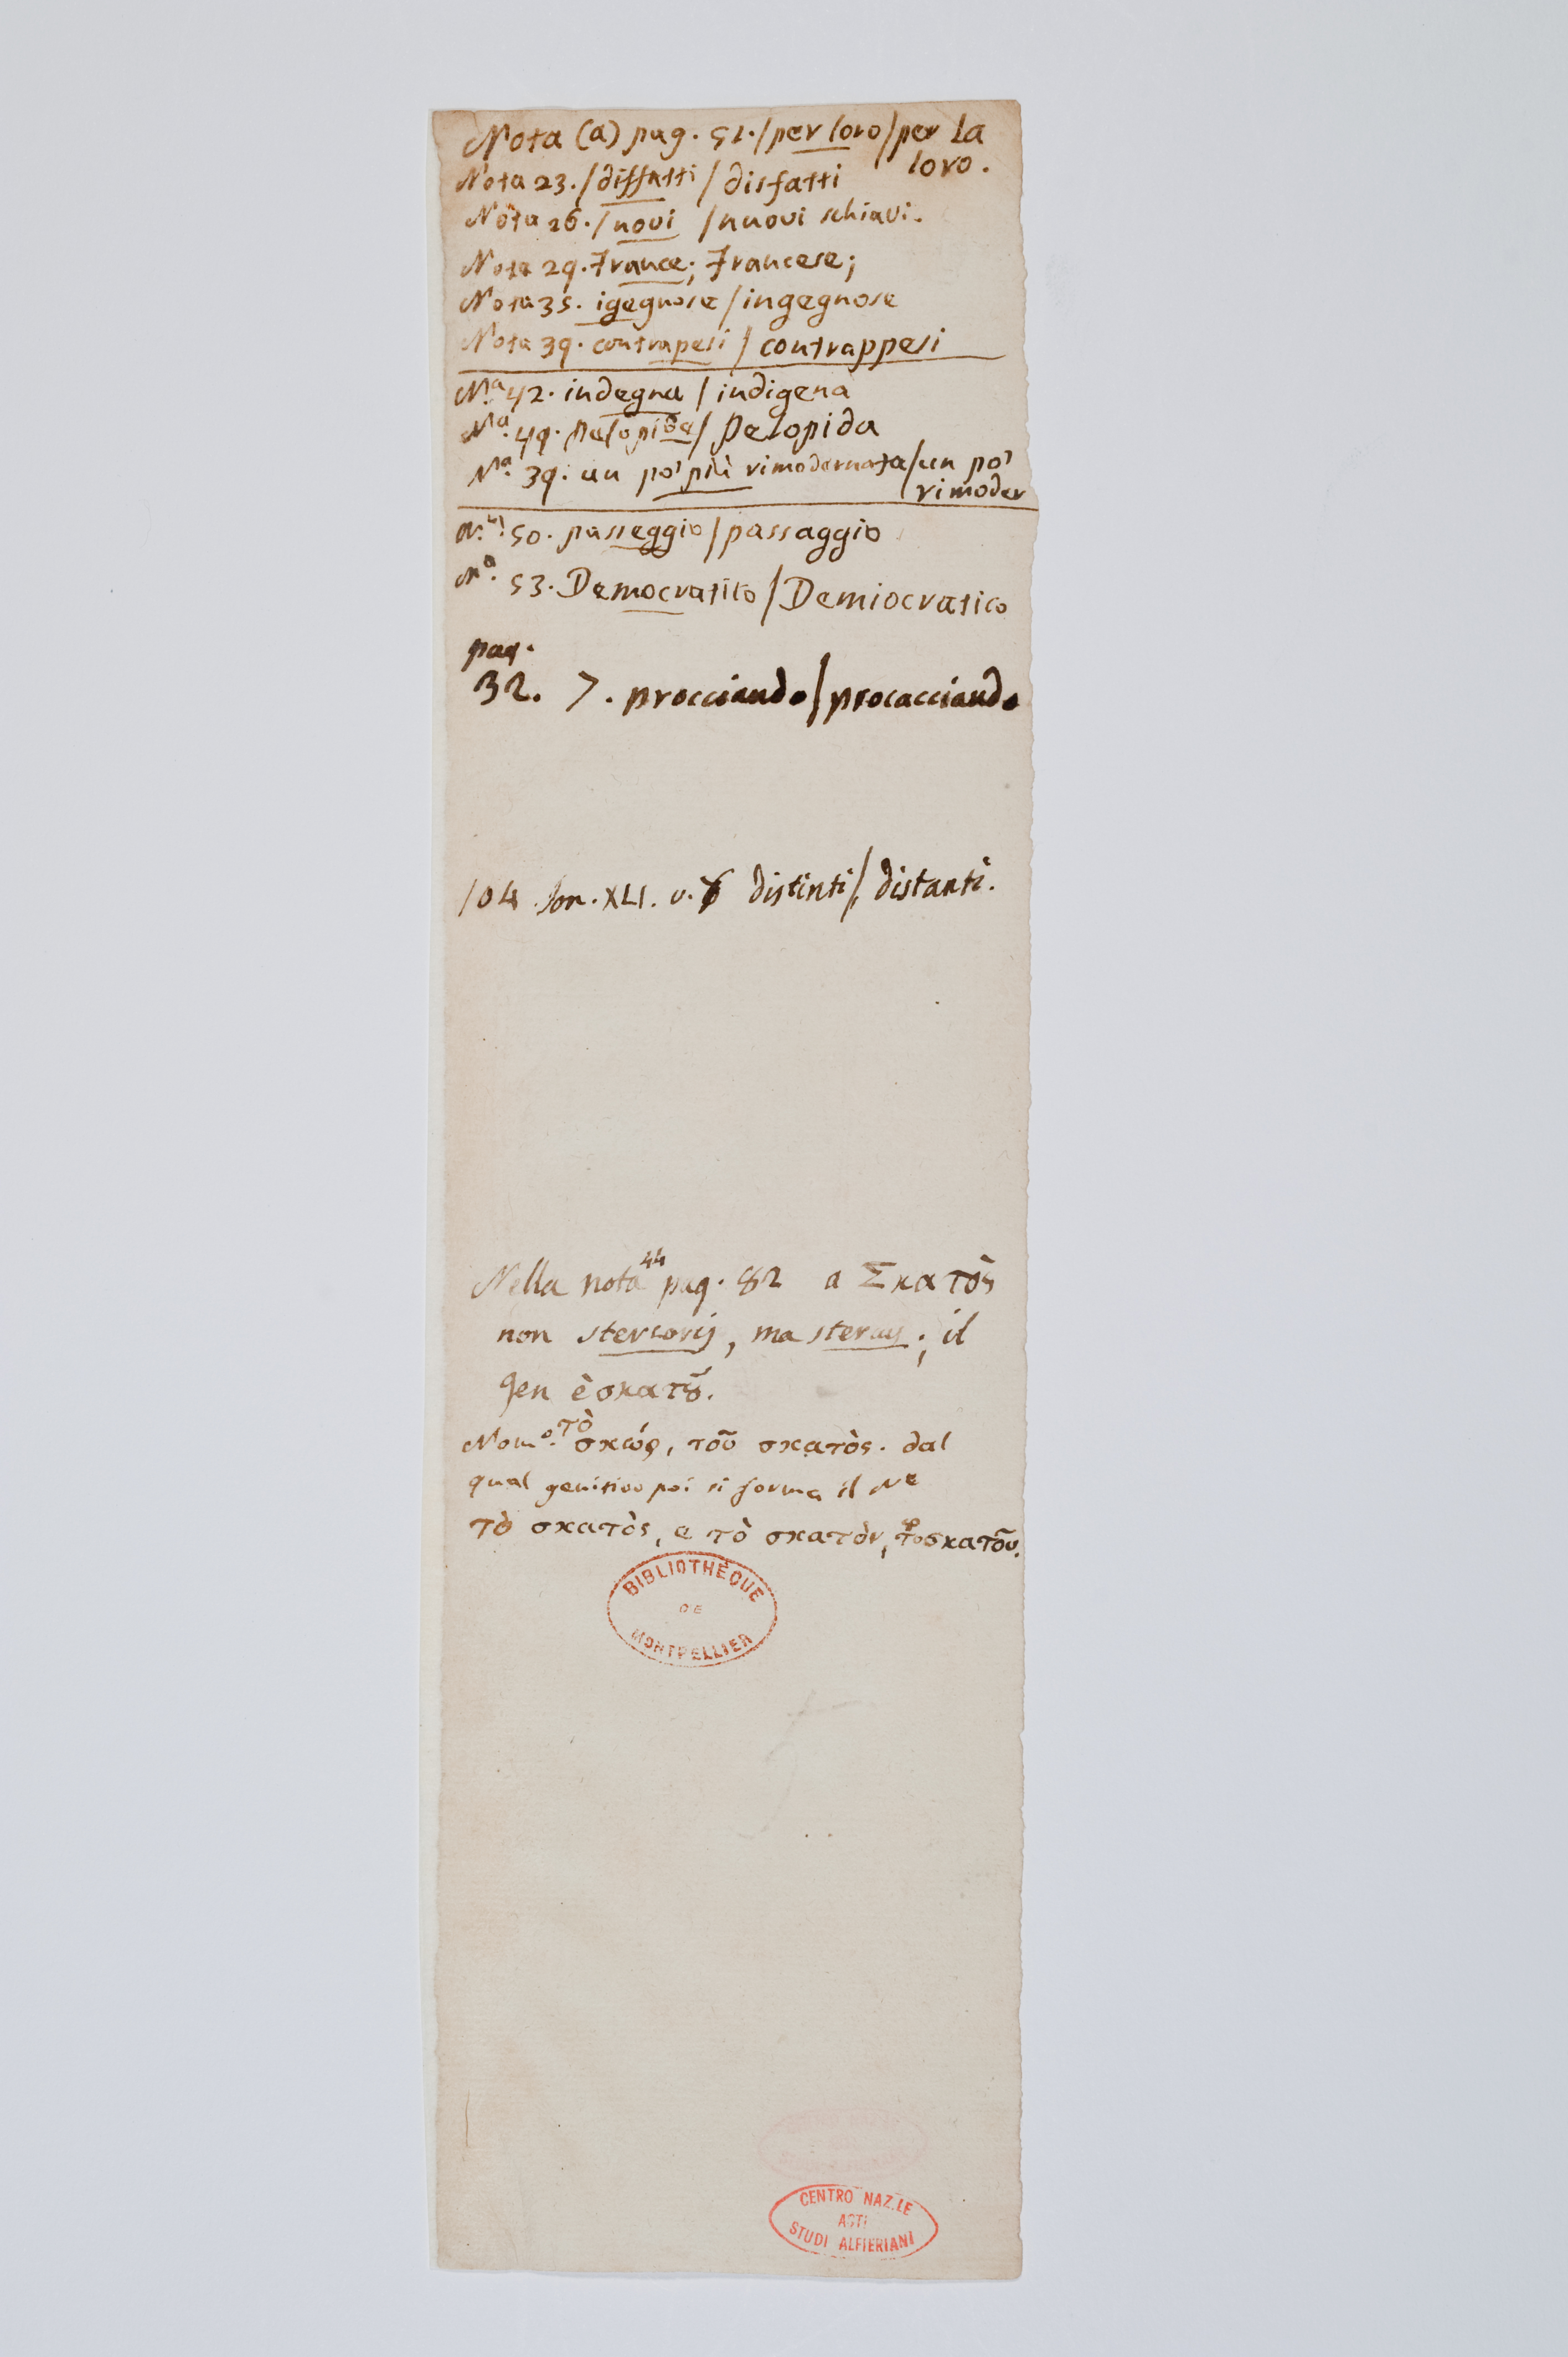 Nota (a) pag. 51./per loro/per la
loro.
Nota 23./diffatti/disfatti
Nota 26./novi /nuovi schiavi.
Nota 29. France; Francese;
Nota 35. igegnose/ingegnose
Nota 39. contrapesi/contrappesi
N.ª 42. indegna/indigena
N.ª 49. Pelopide/Pelopida
N.ª 39. un po' più rimodernata/un po'
rimoder
N.ª 50. passeggio/passaggio
N.ª 53. Democratico/Demiocratico
pag.
32. 7. procciando/procacciando
104. Son. XLI. v. distinti/distanti.
Nella nota 44 pag. 82 a Σκατὸς
non stercoris, ma stercus; il
gen è σκατοῦ.
Nom.º τὸ σκώρ, τοῦ σκατὸς. dal
qual genitivo poi si forma il Ne
τὸ σκατὸς, e τὸ σκατὸν, σκατοῦ.
BIBLIOTHÈQUE
DE
MONTPELLIER
CENTRO NAZ.LE
ASTI
STUDI ALFIERIANI